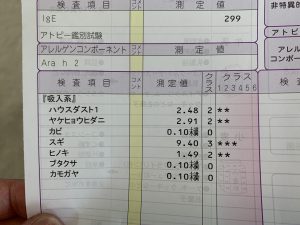 検査項目 コメント 測定値 非特異的
IgE 299
アトピー鑑別試験 アトピ
アレルゲンコンポーネント コメント 測定値 アレル
コンポー
Ara h 2
検査項目 コメント 測定値 クラス クラス
1 2 3 4 5 6
『吸入系』
ハウスダスト1 2.48 2 **
ヤケヒョウヒダニ 2.91 2 **
カビ 0.10未満 0
スギ 9.40 3 ***
ヒノキ 1.49 2 **
ブタクサ 0.10未満 0
カモガヤ 0.10未満 0